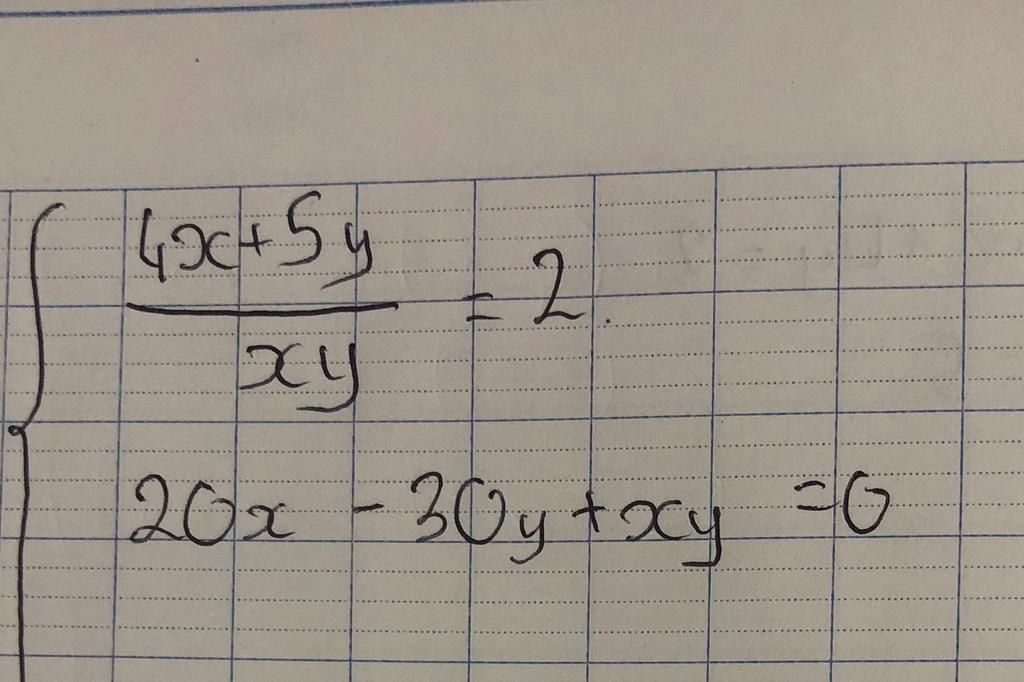 { (4x+5y)/(xy) = 2.
20x - 30y + xy = 0